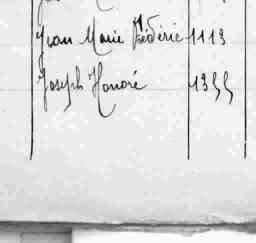 Jean Marie Frédéric 1113
Joseph Honoré 1355